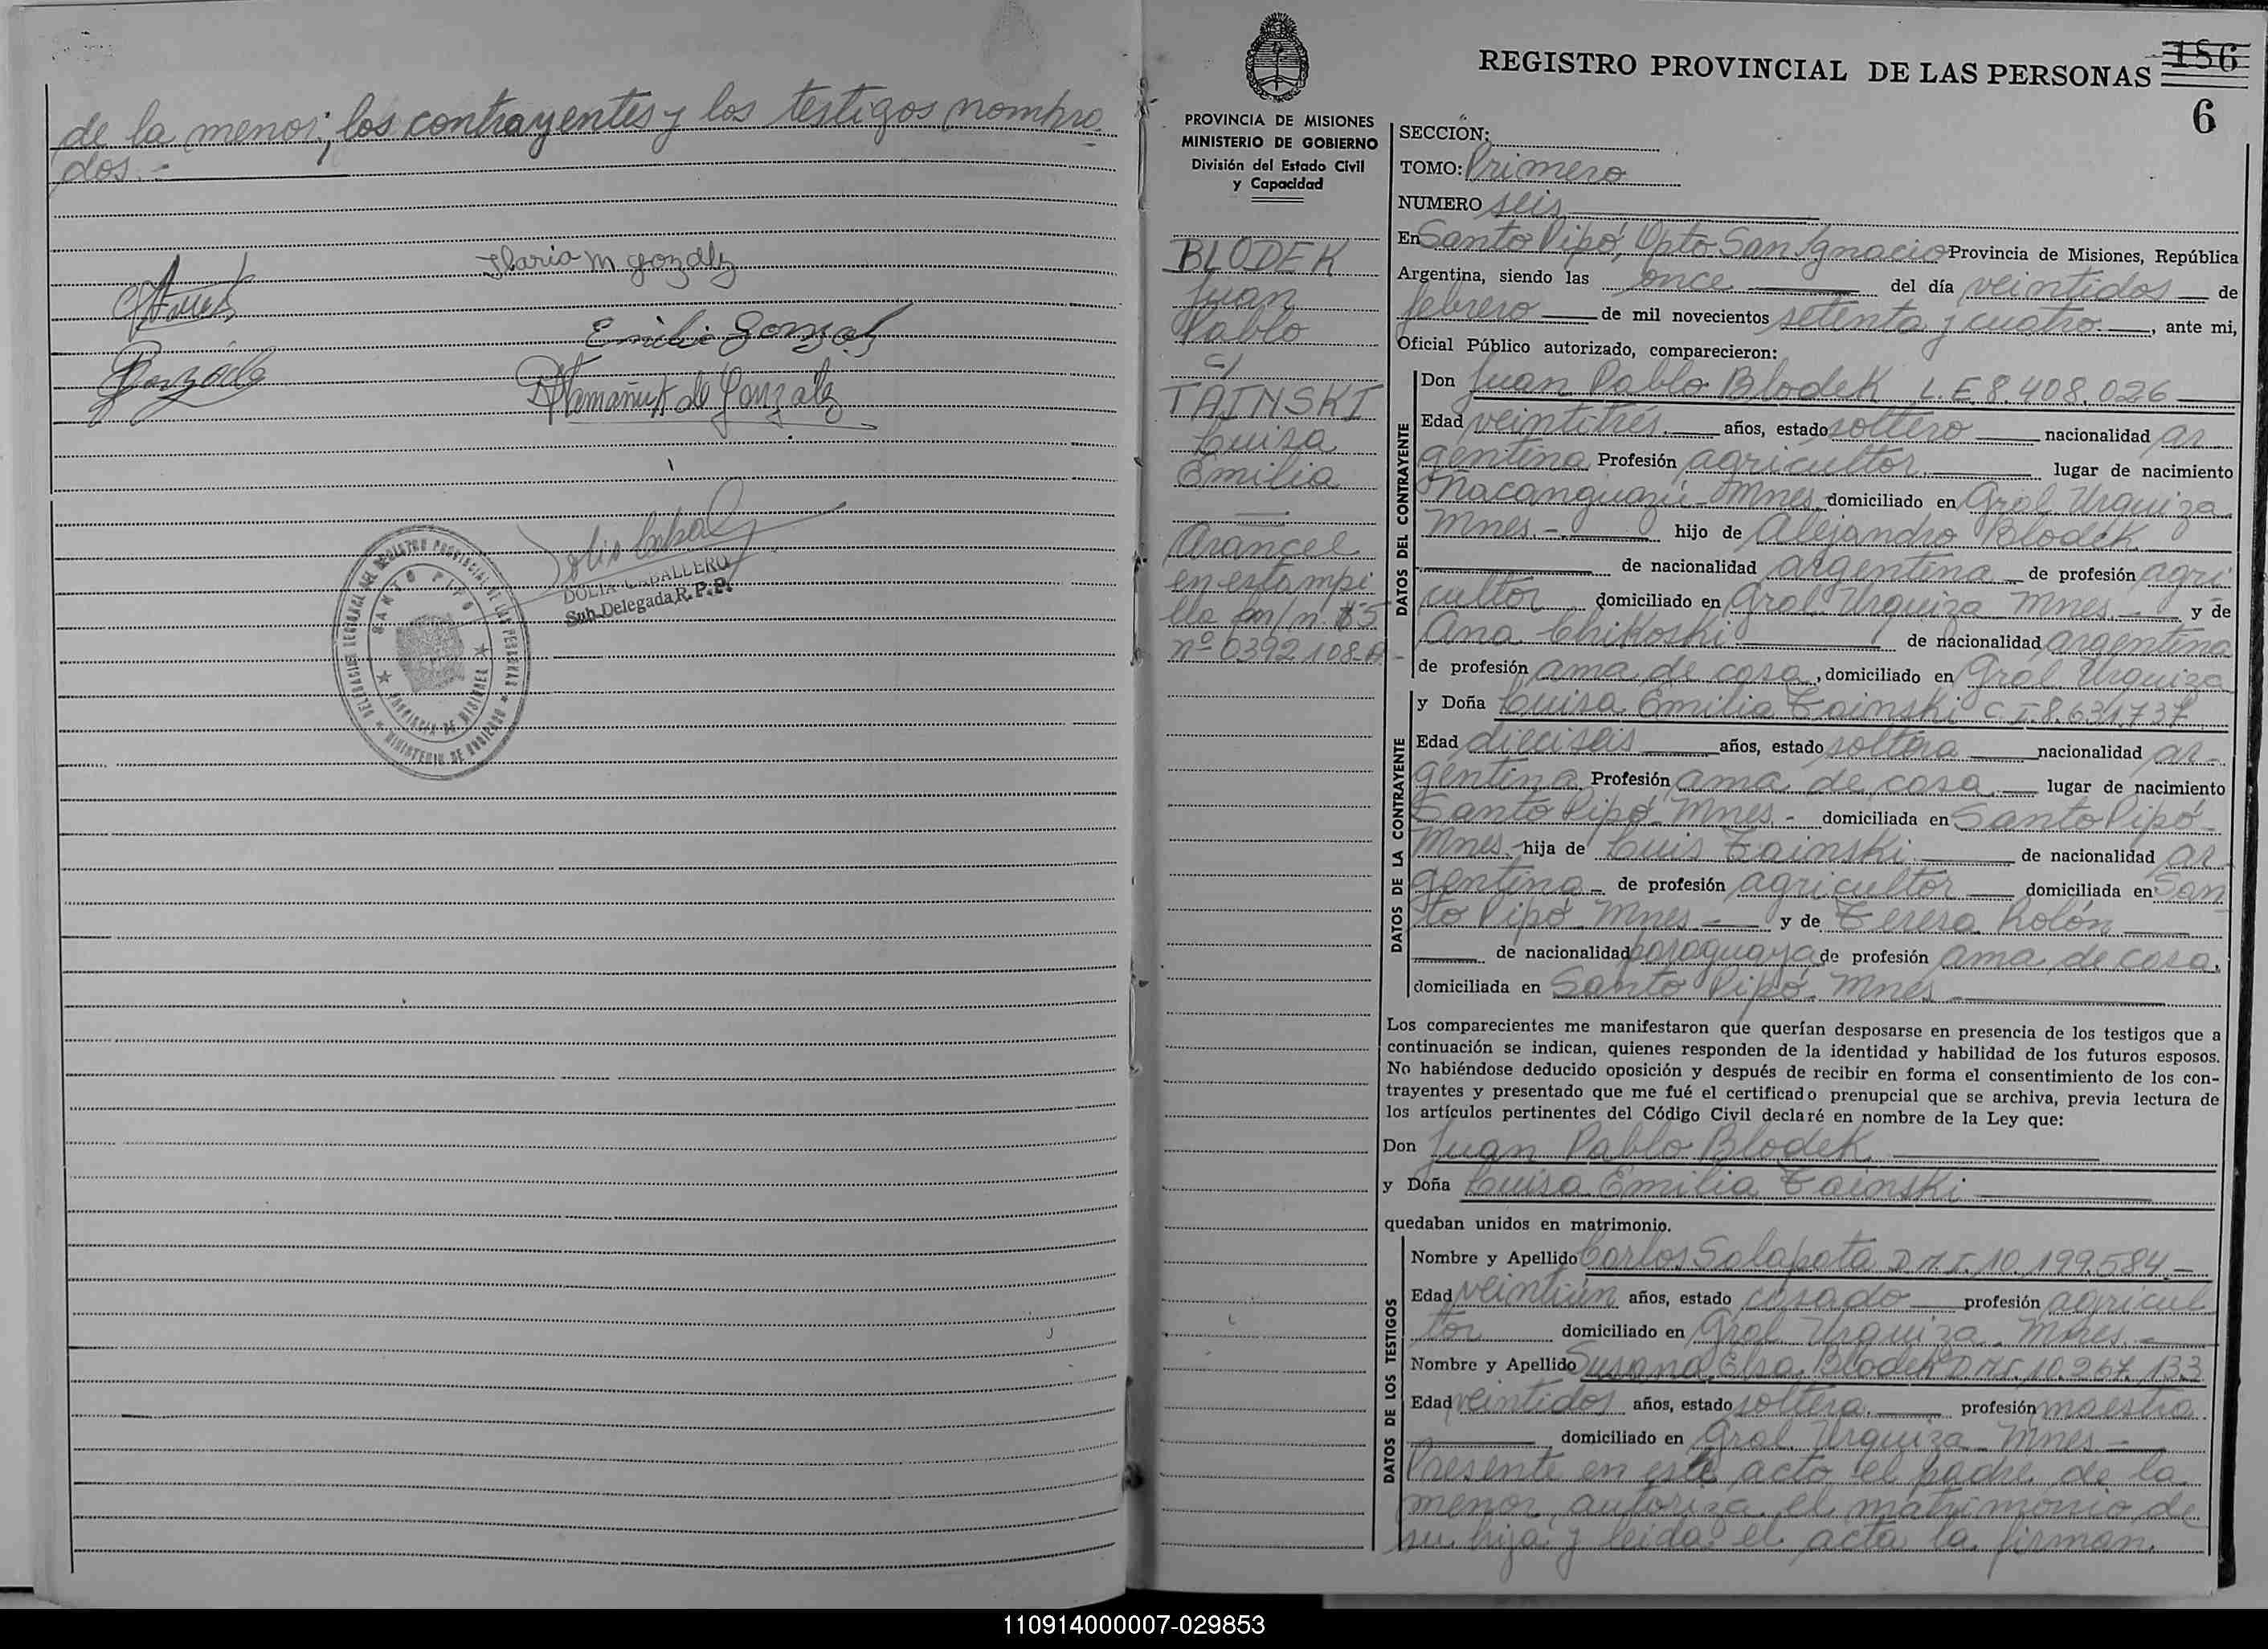 de la menor; los contrayentes y los testigos nombra
dos.-
Ilaria M Gonzalez
Emilio Gonzal
de Gonzalez
DOLIA CABALLERO
Sub-Delegada R. P. P.
SANTO PIPO
PROVINCIA DE MISIONES
MINISTERIO DE GOBIERNO
REGISTRO PROVINCIAL DE LAS PERSONAS
186
6
PROVINCIA DE MISIONES
MINISTERIO DE GOBIERNO
División del Estado Civil
y Capacidad
BLODEK
Juan
Pablo
c/
TAINSKI
Luisa
Emilia
Arancel
en estampi
lla fm/n. $5
nº 0392108-A-
SECCIÓN:
TOMO: Primero
NUMERO seis
En Santo Pipó, Dpto San Ignacio Provincia de Misiones, República
Argentina, siendo las once del día veintidos de
febrero de mil novecientos setenta y cuatro, ante mi,
Oficial Público autorizado, comparecieron:
DATOS DEL CONTRAYENTE
Don Juan Pablo Blodek L.E 8.408.026
Edad veintitrés años, estado soltero nacionalidad ar
gentina Profesión agricultor. lugar de nacimiento
Ñacanguazú-Mnes. domiciliado en Gral Urquiza
Mnes.- hijo de Alejandro Blodek
de nacionalidad argentina de profesión agri
cultor domiciliado en Gral. Urquiza Mnes. y de
Ana Chikoski de nacionalidad argentina
de profesión ama de casa, domiciliado en Gral Urquiza
DATOS DE LA CONTRAYENTE
y Doña Luisa Emilia Tainski C.I.8.631.737
Edad dieciseis años, estado soltera nacionalidad ar-
gentina Profesión ama de casa lugar de nacimiento
Santo Pipó Mnes.- domiciliada en Santo Pipó-
Mnes.- hija de Luis Tainski de nacionalidad ar
gentina- de profesión agricultor domiciliada en San
to Pipó Mnes y de Teresa Rolón
de nacionalidad paraguaya de profesión ama de casa,
domiciliada en Santo Pipó. Mnes
Los comparecientes me manifestaron que querían desposarse en presencia de los testigos que a
continuación se indican, quienes responden de la identidad y habilidad de los futuros esposos.
No habiéndose deducido oposición y después de recibir en forma el consentimiento de los con-
trayentes y presentado que me fué el certificado prenupcial que se archiva, previa lectura de
los artículos pertinentes del Código Civil declaré en nombre de la Ley que:
Don Juan Pablo Blodek
y Doña Luisa Emilia Tainski
quedaban unidos en matrimonio.
DATOS DE LOS TESTIGOS
Nombre y Apellido Carlos Salapata D.N.I. 10.199.584-
Edad veintiún años, estado casado profesión agricul
tor domiciliado en Gral Urquiza. Mnes.-
Nombre y Apellido Susana Elsa Blodek D.N.I. 10.267.133
Edad veintidos años, estado soltera. profesión maestra
domiciliado en Gral. Urquiza Mnes-
Presente en este acto el padre de la
menor autoriza el matrimonio de
su hija y leida el acta la firman.
110914000007-029853